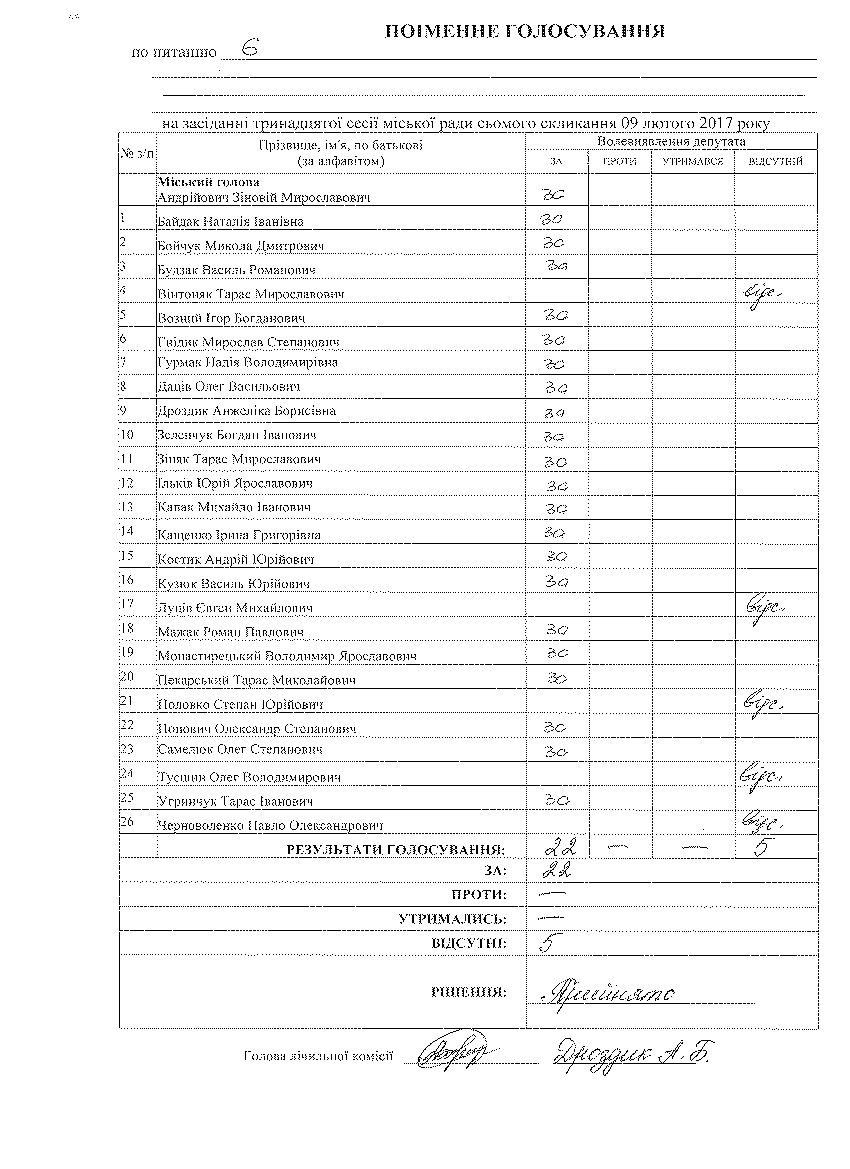 ПОІМЕННЕ ГОЛОСУВАННЯ
по питанню 6
на засіданні тринадцятої сесії міської ради сьомого скликання 09 лютого 2017 року
№ з/п Прізвище, ім'я, по батькові (за алфавітом) Волевиявлення депутата
ЗА ПРОТИ УТРИМАВСЯ ВІДСУТНІЙ
Міський голова
Андрійович Зіновій Мирославович за
1 Байдак Наталія Іванівна за
2 Бойчук Микола Дмитрович за
3 Будзак Василь Романович за
4 Вінтоняк Тарас Мирославович відс.
5 Возний Ігор Богданович за
6 Гнідик Мирослав Степанович за
7 Гурмак Надія Володимирівна за
8 Даців Олег Васильович за
9 Дроздик Анжеліка Борисівна за
10 Зеленчук Богдан Іванович за
11 Зіняк Тарас Мирославович за
12 Ільків Юрій Ярославович за
13 Капак Михайло Іванович за
14 Кащенко Ірина Григорівна за
15 Костик Андрій Юрійович за
16 Кузюк Василь Юрійович за
17 Луців Євген Михайлович відс.
18 Мажак Роман Павлович за
19 Монастирецький Володимир Ярославович за
20 Пекарський Тарас Миколайович за
21 Половко Степан Юрійович відс.
22 Попович Олександр Степанович за
23 Самелюк Олег Степанович за
24 Тусшин Олег Володимирович відс.
25 Угринчук Тарас Іванович за
26 Черноволенко Павло Олександрович відс.
РЕЗУЛЬТАТИ ГОЛОСУВАННЯ: 22 — — 5
ЗА: 22
ПРОТИ: —
УТРИМАЛИСЬ: —
ВІДСУТНІ: 5
РІШЕННЯ: Прийнято
Голова лічильної комісії Дроздик А. Б.